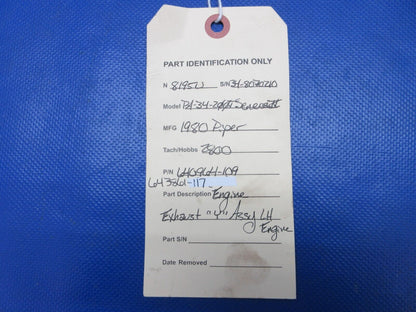 PART IDENTIFICATION ONLY
N 8195U S/N 34-8070210
Model PA-34-200T Seneca II
MFG 1980 Piper
Tach/Hobbs 2800
P/N 640964-109
643261-117
Part Description Engine
Exhaust "Y" Assy LH
Engine
Part S/N
Date Removed